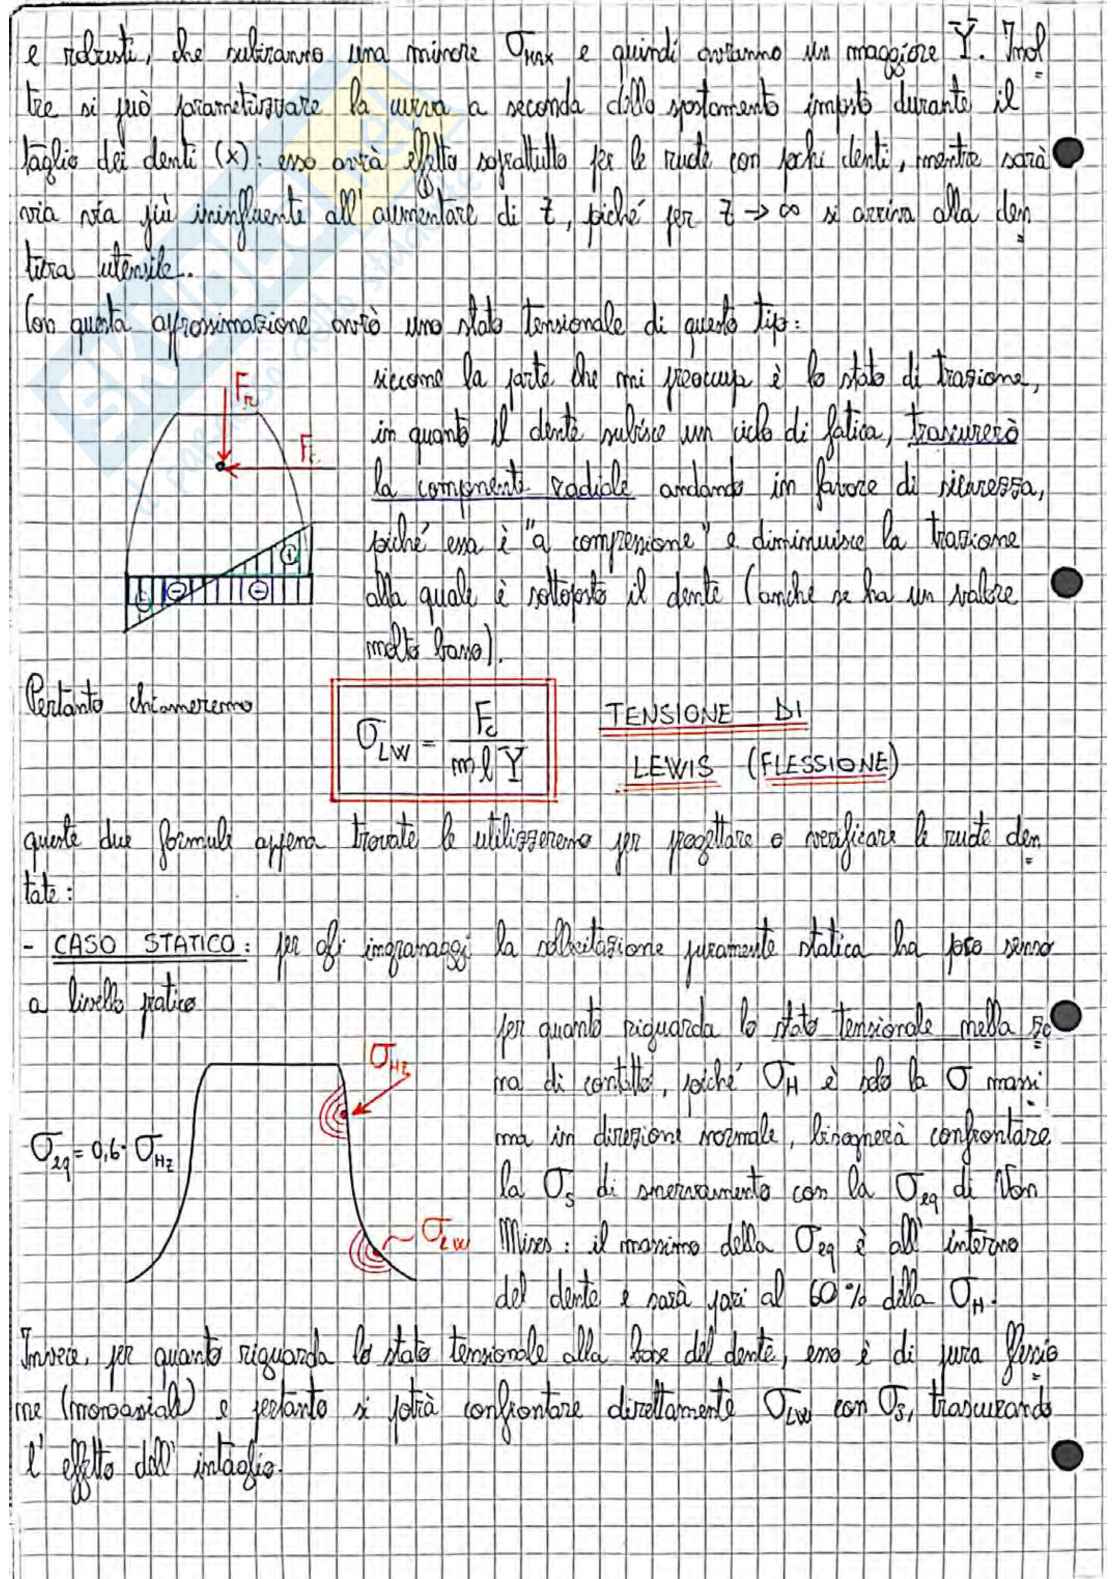 e robusti, che subiranno una minore σMAX e quindi avranno un maggiore Y. Inol
tre si può parametrizzare la curva a seconda dello spostamento imposto durante il
taglio dei denti (x): esso avrà effetto soprattutto per le ruote con pochi denti, mentre sarà
via via più ininfluente all'aumentare di z, poiché per z → ∞ si arriva alla den
tiera utensile.
Con questa approssimazione avrò uno stato tensionale di questo tipo:
siccome la parte che mi preoccupa è lo stato di trazione,
Fr
in quanto il dente subisce un ciclo di fatica, trascurerò
Fc
la componente radiale andando in favore di sicurezza,
poiché essa è "a compressione" e diminuisce la trazione
alla quale è sottoposto il dente (anche se ha un valore
molto basso).
Pertanto chiameremo
σLW = Fc / m l Y
TENSIONE DI
LEWIS (FLESSIONE)
queste due formule appena trovate le utilizzeremo per progettare o verificare le ruote den
tate:
- CASO STATICO: per gli ingranaggi la sollecitazione puramente statica ha poco senso
a livello pratico
per quanto riguarda lo stato tensionale nella zo
σHz
na di contatto, poiché σH è solo la σ massi
σeq = 0,6 · σHz
ma in direzione normale, bisognerà confrontare
la σs di snervamento con la σeq di Von
σLW
Mises: il massimo della σeq è all'interno
del dente e sarà pari al 60% della σH.
Invece, per quanto riguarda lo stato tensionale alla base del dente, esso è di pura flessio
ne (monoassiale) e pertanto si potrà confrontare direttamente σLW con σs, trascurando
l'effetto dell'intaglio.